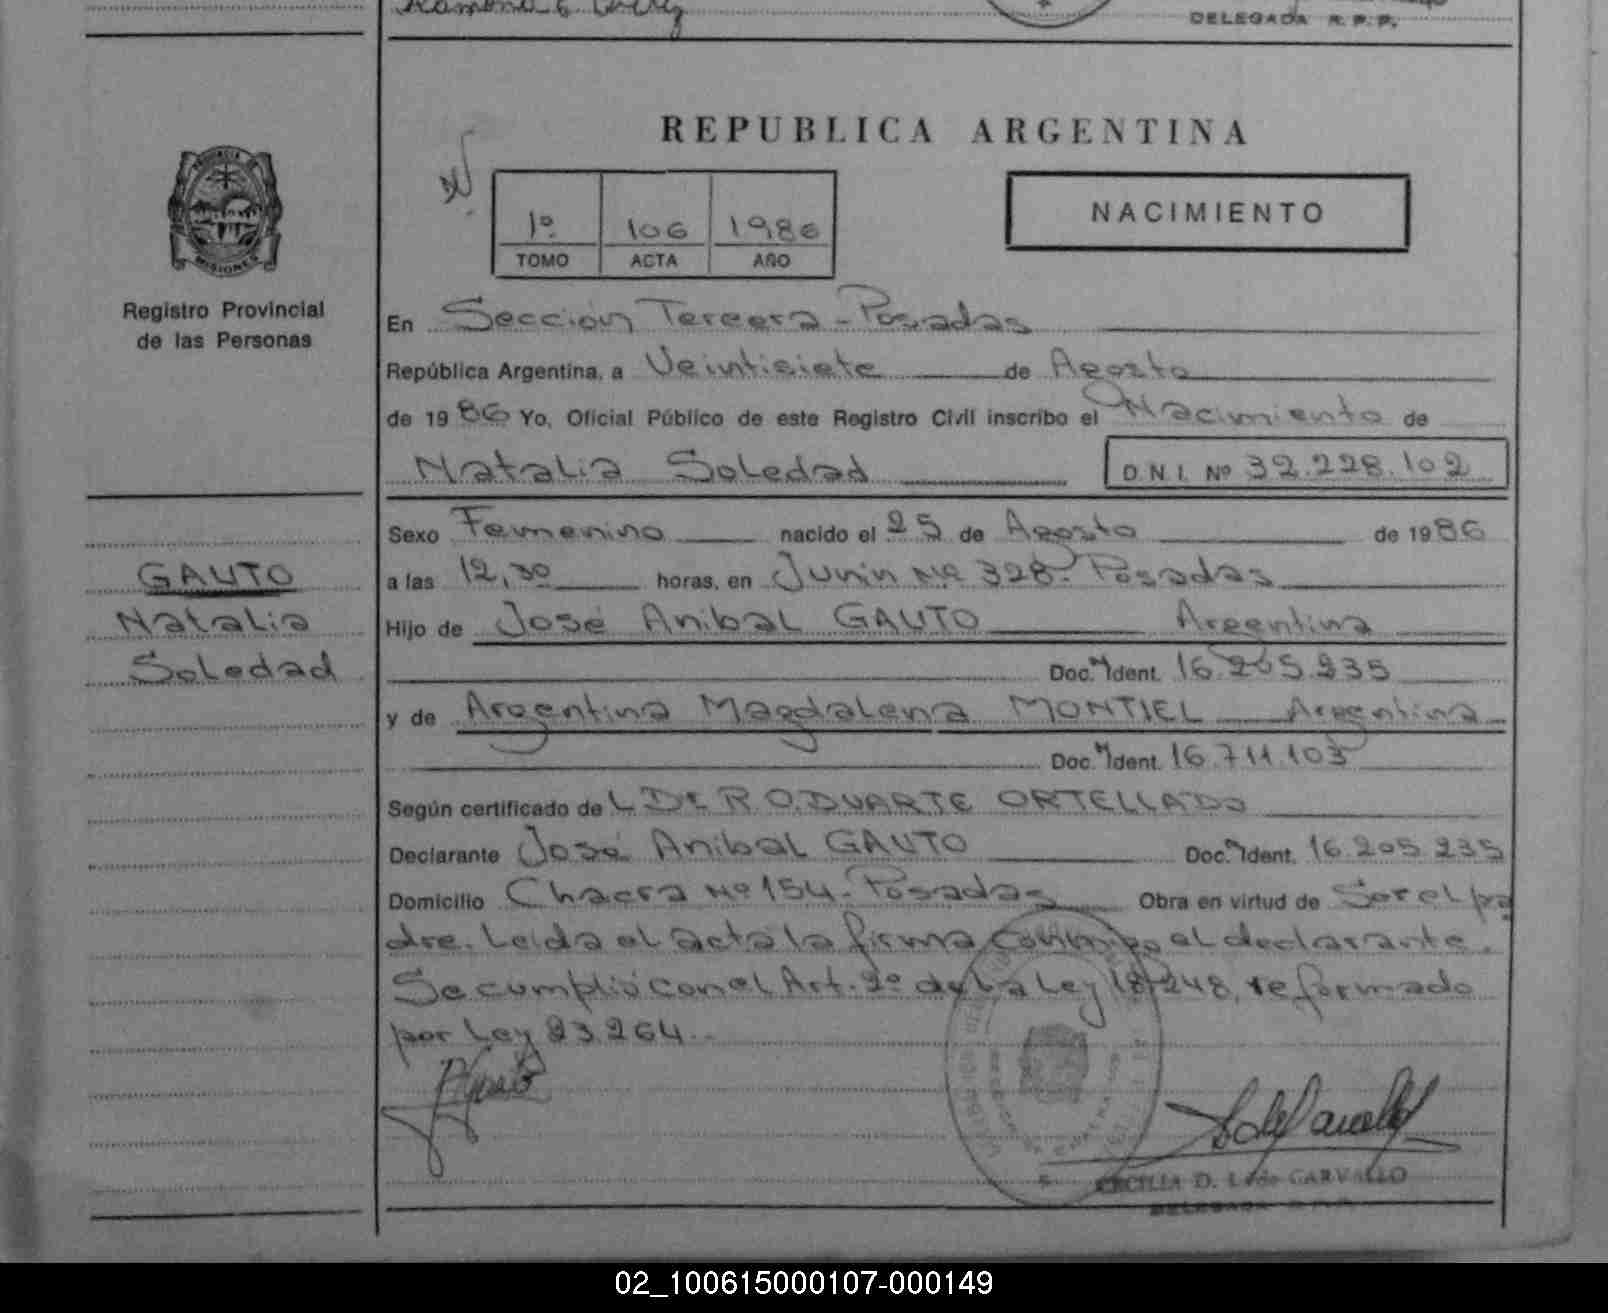 Ramona
DELEGADA R.P.P.
REPUBLICA ARGENTINA
PROVINCIA DE
MISIONES
Registro Provincial
de las Personas
1º 106 1986
TOMO ACTA AÑO
NACIMIENTO
En Sección Tercera - Posadas
República Argentina, a Veintisiete de Agosto
de 1986 Yo, Oficial Público de este Registro Civil inscribo el Nacimiento de
Natalia Soledad D.N.I. Nº 32.228.102
Sexo Femenino nacido el 25 de Agosto de 1986
GAUTO
Natalia
Soledad
a las 12,30 horas, en Junin Nº 328- Posadas
Hijo de José Anibal GAUTO Argentina
Doc. Ident. 16.205.235
y de Argentina Magdalena MONTIEL Argentina
Doc. Ident. 16.711.103
Según certificado de L DE R O. DUARTE ORTELLADO
Declarante José Anibal GAUTO Doc. Ident. 16.205.235
Domicilio Chacra Nº 154- Posadas Obra en virtud de Ser el pa
dre. Leida el acta la firma conmigo el declarante.
Se cumplió con el Art. 2º de la Ley 18.248, reformado
por Ley 23.264.-
CECILIA D. L. de CARVALLO
DELEGADA R.P.P.
02_100615000107-000149